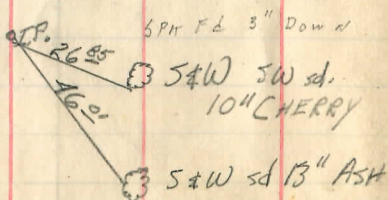 SPK Fd 3" Down
I.P.
26 85
S&W SW sd.
10" CHERRY
46 01
S&W sd 13" ASH